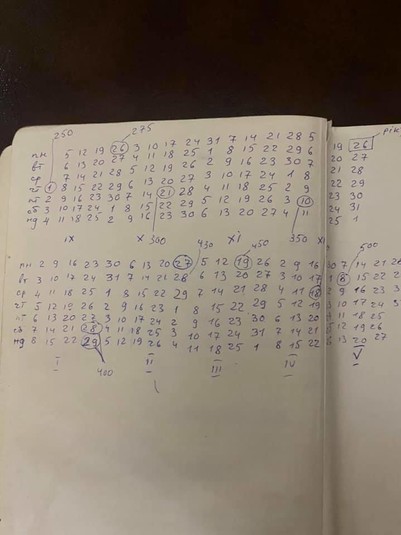 250 275
пн 5 12 19 26 3 10 17 24 31 7 14 21 28 5 19 26 рік
вт 6 13 20 27 4 11 18 25 1 8 15 22 29 6 20 27
ср 7 14 21 28 5 12 19 26 2 9 16 23 30 7 21 28
чт 1 8 15 22 29 6 13 20 27 3 10 17 24 1 8 22 29
пт 2 9 16 23 30 7 14 21 28 4 11 18 25 2 9 23 30
сб 3 10 17 24 1 8 15 22 29 5 12 19 26 3 10 24 31
нд 4 11 18 25 2 9 16 23 30 6 13 20 27 4 11 25 1
IX X 300 XI 350
430 450 500
пн 2 9 16 23 30 6 13 20 27 5 12 19 26 2 9 16 30 7 14 21
вт 3 10 17 24 31 7 14 21 28 6 13 20 27 3 10 17 1 8 15 22
ср 4 11 18 25 1 8 15 22 29 7 14 21 28 4 11 18 2 9 16 23
чт 5 12 19 26 2 9 16 23 1 8 15 22 29 5 12 19 3 10 17 24
пт 6 13 20 27 3 10 17 24 2 9 16 23 30 6 13 20 11 18 25
сб 7 14 21 28 4 11 18 25 3 10 17 24 31 7 14 21 12 19 26
нд 8 15 22 29 5 12 19 26 4 11 18 25 1 8 15 22 13 20 27
I II III IV V
400